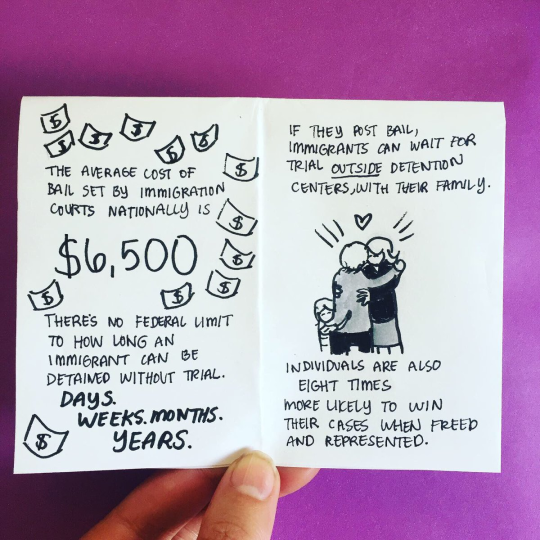 THE AVERAGE COST OF
BAIL SET BY IMMIGRATION
COURTS NATIONALLY IS
$6,500
THERE'S NO FEDERAL LIMIT
TO HOW LONG AN
IMMIGRANT CAN BE
DETAINED WITHOUT TRIAL.
DAYS.
WEEKS. MONTHS.
YEARS.
$
$
$
$
$
$
$
$
$
$
$
$
$
IF THEY POST BAIL,
IMMIGRANTS CAN WAIT FOR
TRIAL OUTSIDE DETENTION
CENTERS, WITH THEIR FAMILY.
INDIVIDUALS ARE ALSO
EIGHT TIMES
MORE LIKELY TO WIN
THEIR CASES WHEN FREED
AND REPRESENTED.